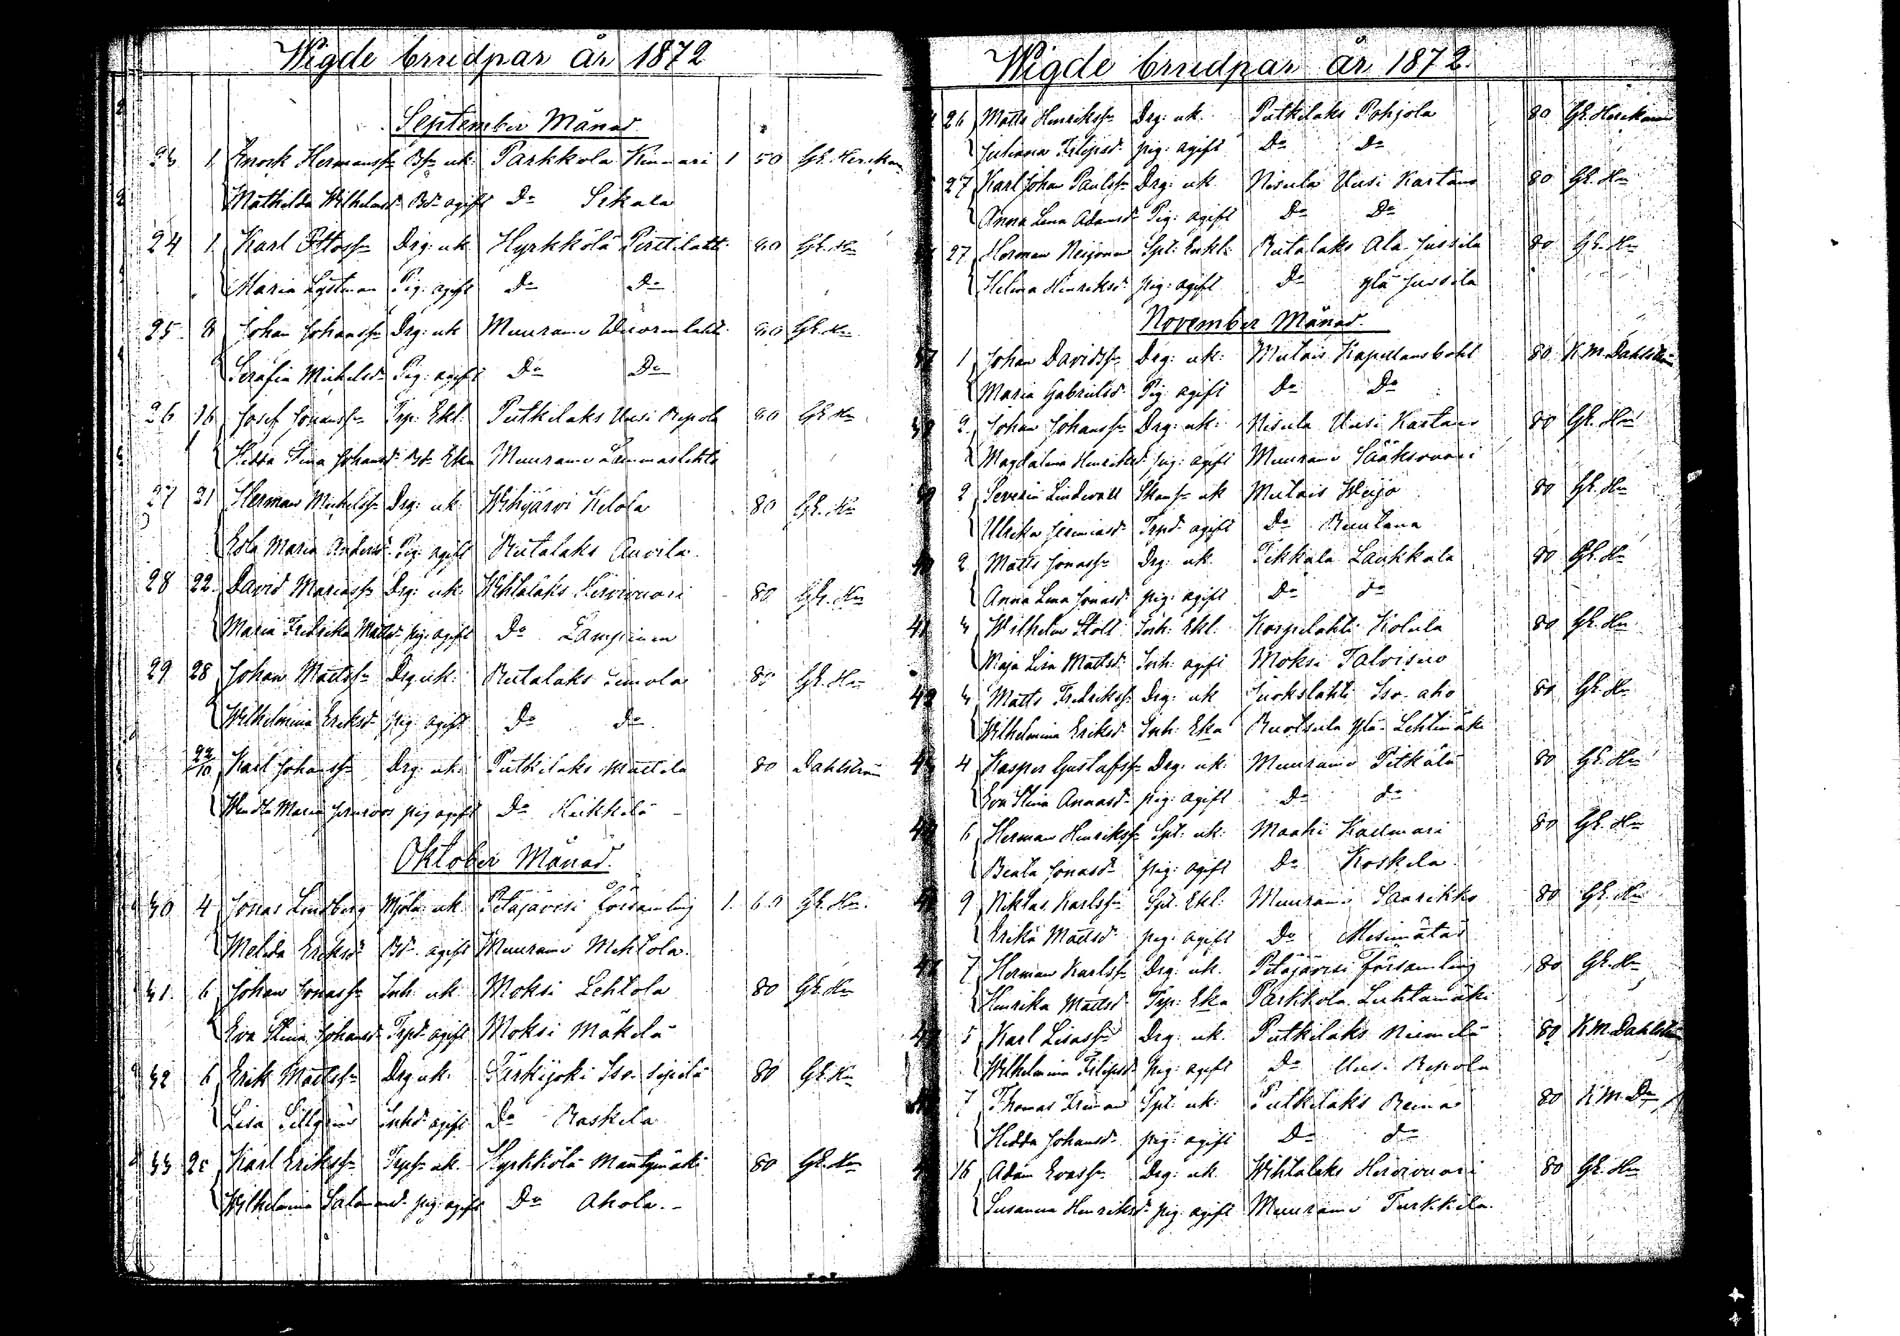 Wigde brudpar år 1872
September Månad
23 1 Enock Hermanss: Bs: uk: Parkkola Kinnari 1 50 Gb. Henrikson
Mathilda Wilhelmsd: Bd: ogift Do Sikala
24 1 Karl Ottoss: Drg: uk: Hyrkkölä Perttilaht: 80 Gb. Hn
Maria Lystman Pig: ogift Do Do
25 8 Johan Johanss: Drg: uk Muurame Wuorenlaht: 80 Gb. Hn
Serafia Michelsd: Pig: ogift Do Do
26 16 Josef Jonass: Trp: Ekl: Putkilaks Uusi Repola 80 Gb Hn
Hedda Stina Johansd: Bd: Eka Muurame Lammaslehto
27 21 Herman Michelss: Drg: uk: Wihijärvi Kelola 80 Gb. Hn
Eola Maria Andersd: Pig: ogift Rutalaks Anvila
28 22 David Mariass: Drg: uk: Wihtalaks Hirvivuori 80 Gb. Hn
Maria Fredrika Mattsd: pig: ogift Do Lampinen
29 28 Johan Mattss: Drg: uk: Rutalaks Simola 80 Gb. Hn
Wilhelmina Eriksd: pig: ogift Do Do
22/10 Karl Johanss: Drg: uk: Putkilaks Mattila 80 Dahlström
Maria pig ogift Do Heikkilä
Oktober Månad.
30 4 Jonas Lindberg Mjöln: uk: Petäjävesi församling 1. 60 Gb. Hn.
Melida Eriksd: Bd: ogift Muurame Mehtola.
31. 6 Johan Jonass: Inh: uk: Moksi Lehtola 80 Gb. Hn
Eva Stina Johansd: Trpd: ogift Moksi Mäkelä
32 6 Erik Mattss: Drg: uk: Särkijoki Iso-sipilä 80 Gb. Hn
Lisa Sillgrén Inhd: ogift Do Raskila
33 25 Karl Erikss: Trps: uk: Hyrkkölä Mäntymäki 80 Gb. Hn
Wilhelmina Salomonsd: pig: ogift Do Ahola.
Wigde brudpar år 1872.
26 Matts Henrikss: Drg: uk: Putkilaks Pohjola 80 Gb. Henrikson
Juliana Filipsd: pig: ogift Do Do
27 Karl Johan Paulss: Drg: uk: Nisula Uusi Kartano 80 Gb. Hn
Anna Lena Adamsd: Pig: ogift Do Do
27 Herman Neijonen Spt: Enkl: Rutalaks Ala-Jussila 80 Gb. Hn
Helena Henriksd: pig: ogift Do Ylä Jussila
November Månad.
37 1 Johan Davidss: Drg: uk: Mutais Kapellansbohl 80 K M Dahlström
Maria Gabrielsd: Pig ogift Do Do
38 2. Johan Johanss: Drg: uk: Nisula Uusi Kartano 80 Gb. Hn
Magdalena Henriksd: pig: ogift Muurame Sääksvuori
39 2 Severin Lindevall uk Mutais Weijo 80 Gb. Hn
Ulrika Jeremiasd: Trpd: ogift Do Ruutana
40 2 Matts Jonass: Drg: uk: Tikkala Laukkala 80 Gb. Hn
Anna Lena Jonasd: pig: ogift Do do
41 3 Wilhelm Stoll Inh: Ekl. Korpilahti Kolula 80 Gb. Hn
Maja Lisa Mattsd: Inh: ogift Moksi Talvisuo
42 3 Matts Fredrikss: Drg: uk Juokslahti Iso-aho 80 Gb. Hn
Wilhelmina Eriksd: Inh: Eka Ruotsula Ylä-Lehtimäki
43 4 Kasper Gustafss: Drg: uk: Muurame Pitkälä 80 Gb. Hn
Eva Stina Annasd: pig: ogift Do do
44 6 Herman Henrikss: Spt: uk: Maahi Kailmari 80 Gb. Hn
Beata Jonasd: pig: ogift Do Koskela.
9 Niklas Karlss: Spt: Ekl: Muurame Saarikko 80 Gb. Hn
Erika Mattsd: pig: ogift Do Mesimätäs
7 Herman Karlss: Drg: uk. Petäjävesi församling 80 Gb. Hn
Henrika Mattsd: Trp: Eka Parkkola Luhtamäki
5 Karl Lisass: Drg: uk. Putkilaks Niemelä 80 K M Dahlström
Wilhelmina Filipsd: pig: ogift Do Uusi Repola
7 Thomas Friman Spt: uk: Putkilaks Reina 80 K M. Dm
Hedda Johansd: pig: ogift Do do
16 Adam Evass: Drg: uk: Wihtalaks Hirvivuori 80 Gb. Hn
Susanna Henriksd: pig: ogift Muurame Turkkila.